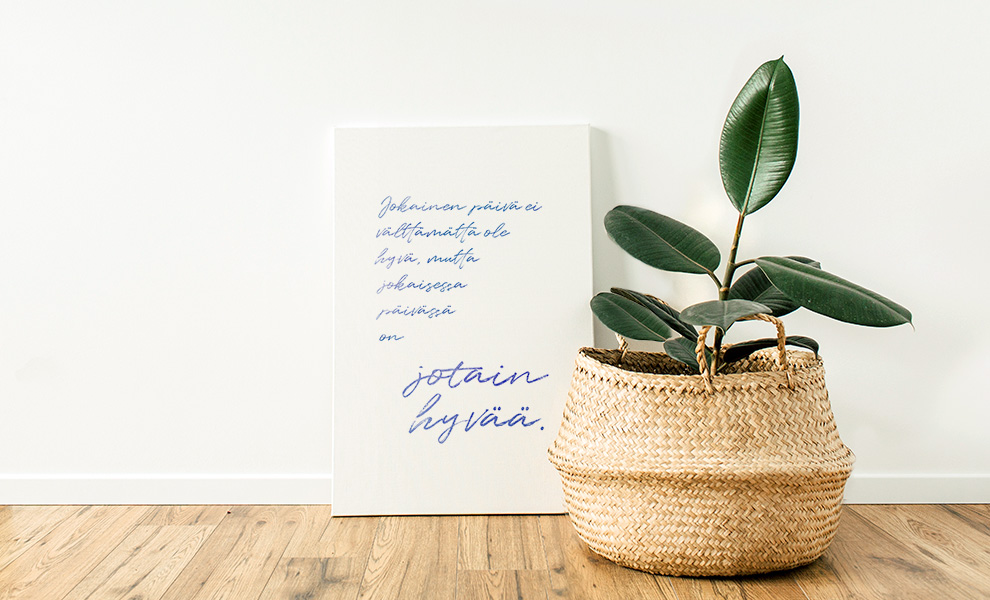 Jokainen päivä ei
välttämättä ole
hyvä, mutta
jokaisessa
päivässä
on
jotain
hyvää.